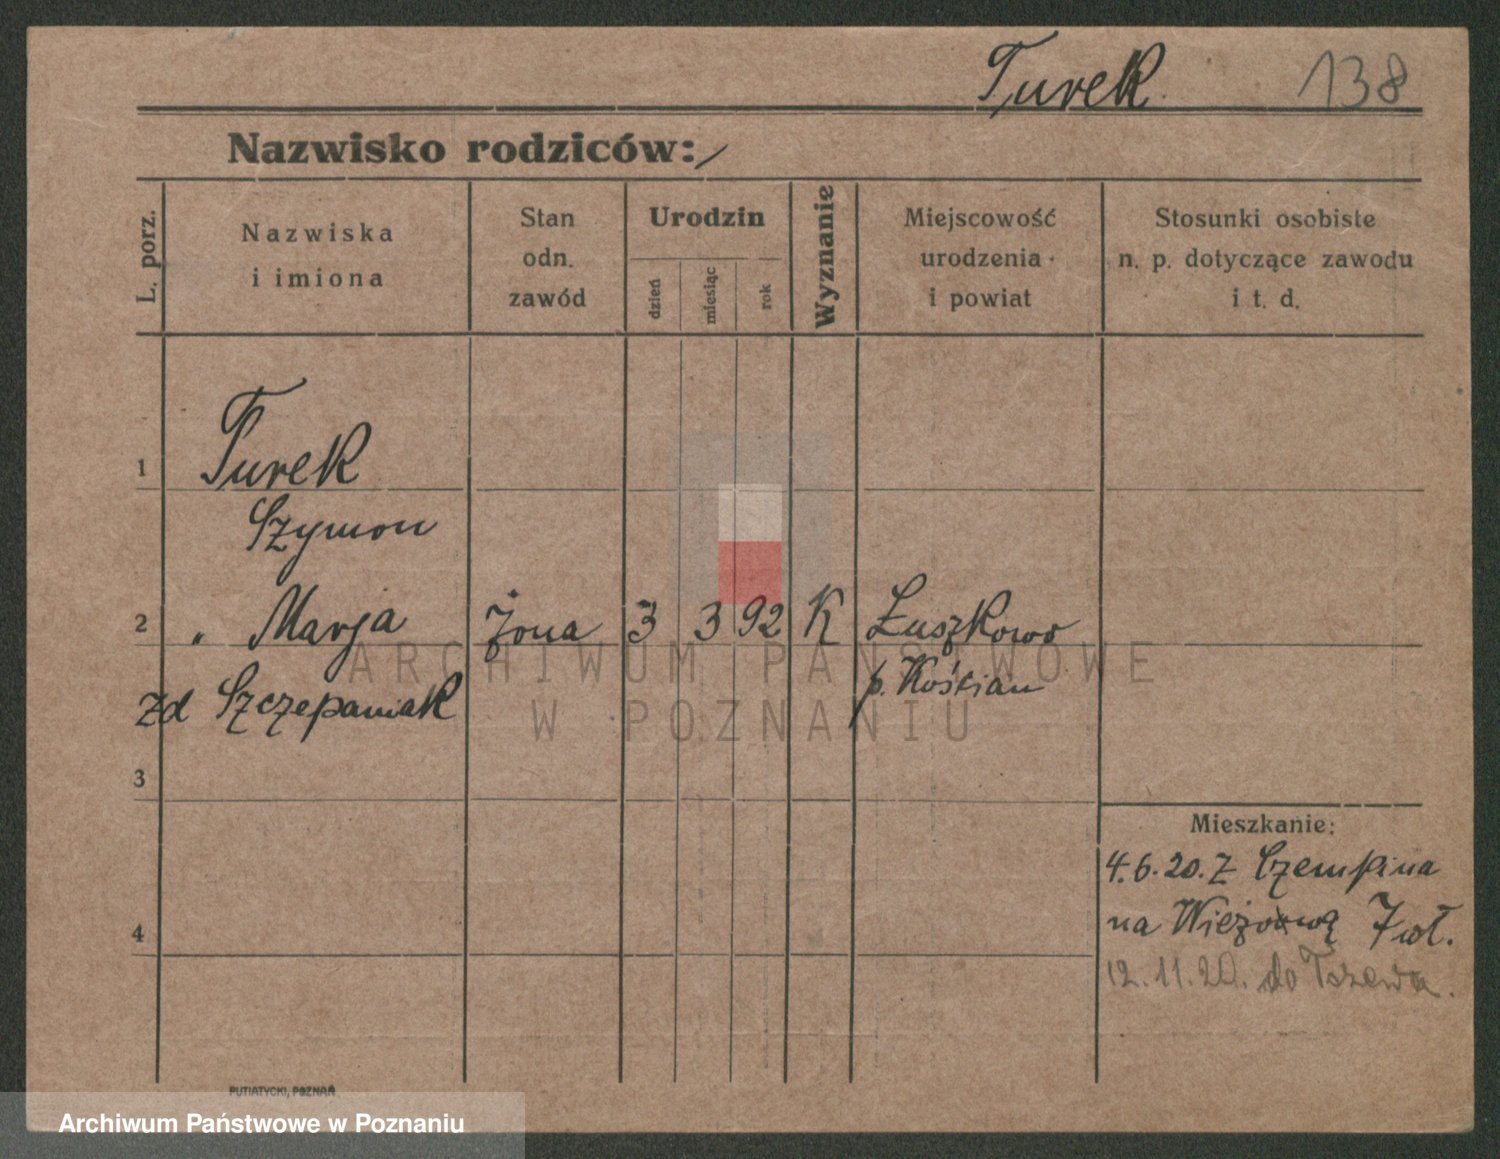 Turek 138
Nazwisko rodziców:
L. porz.
Nazwiska
i imiona
Stan
odn.
zawód
Urodzin
dzień
miesiąc
rok
Wyznanie
Miejscowość
urodzenia
i powiat
Stosunki osobiste
n. p. dotyczące zawodu
i t. d.
1 Turek
Szymon
2 " Marja żona 3 3 92 K Łuszkowo
p. Kościan
zd Szczepaniak
3
4
Mieszkanie:
4.6.20. z Czempina
na Wieżową
12.11.20. do
ARCHIWUM PAŃSTWOWE
W POZNANIU
PUTIATYCKI, POZNAŃ
Archiwum Państwowe w Poznaniu